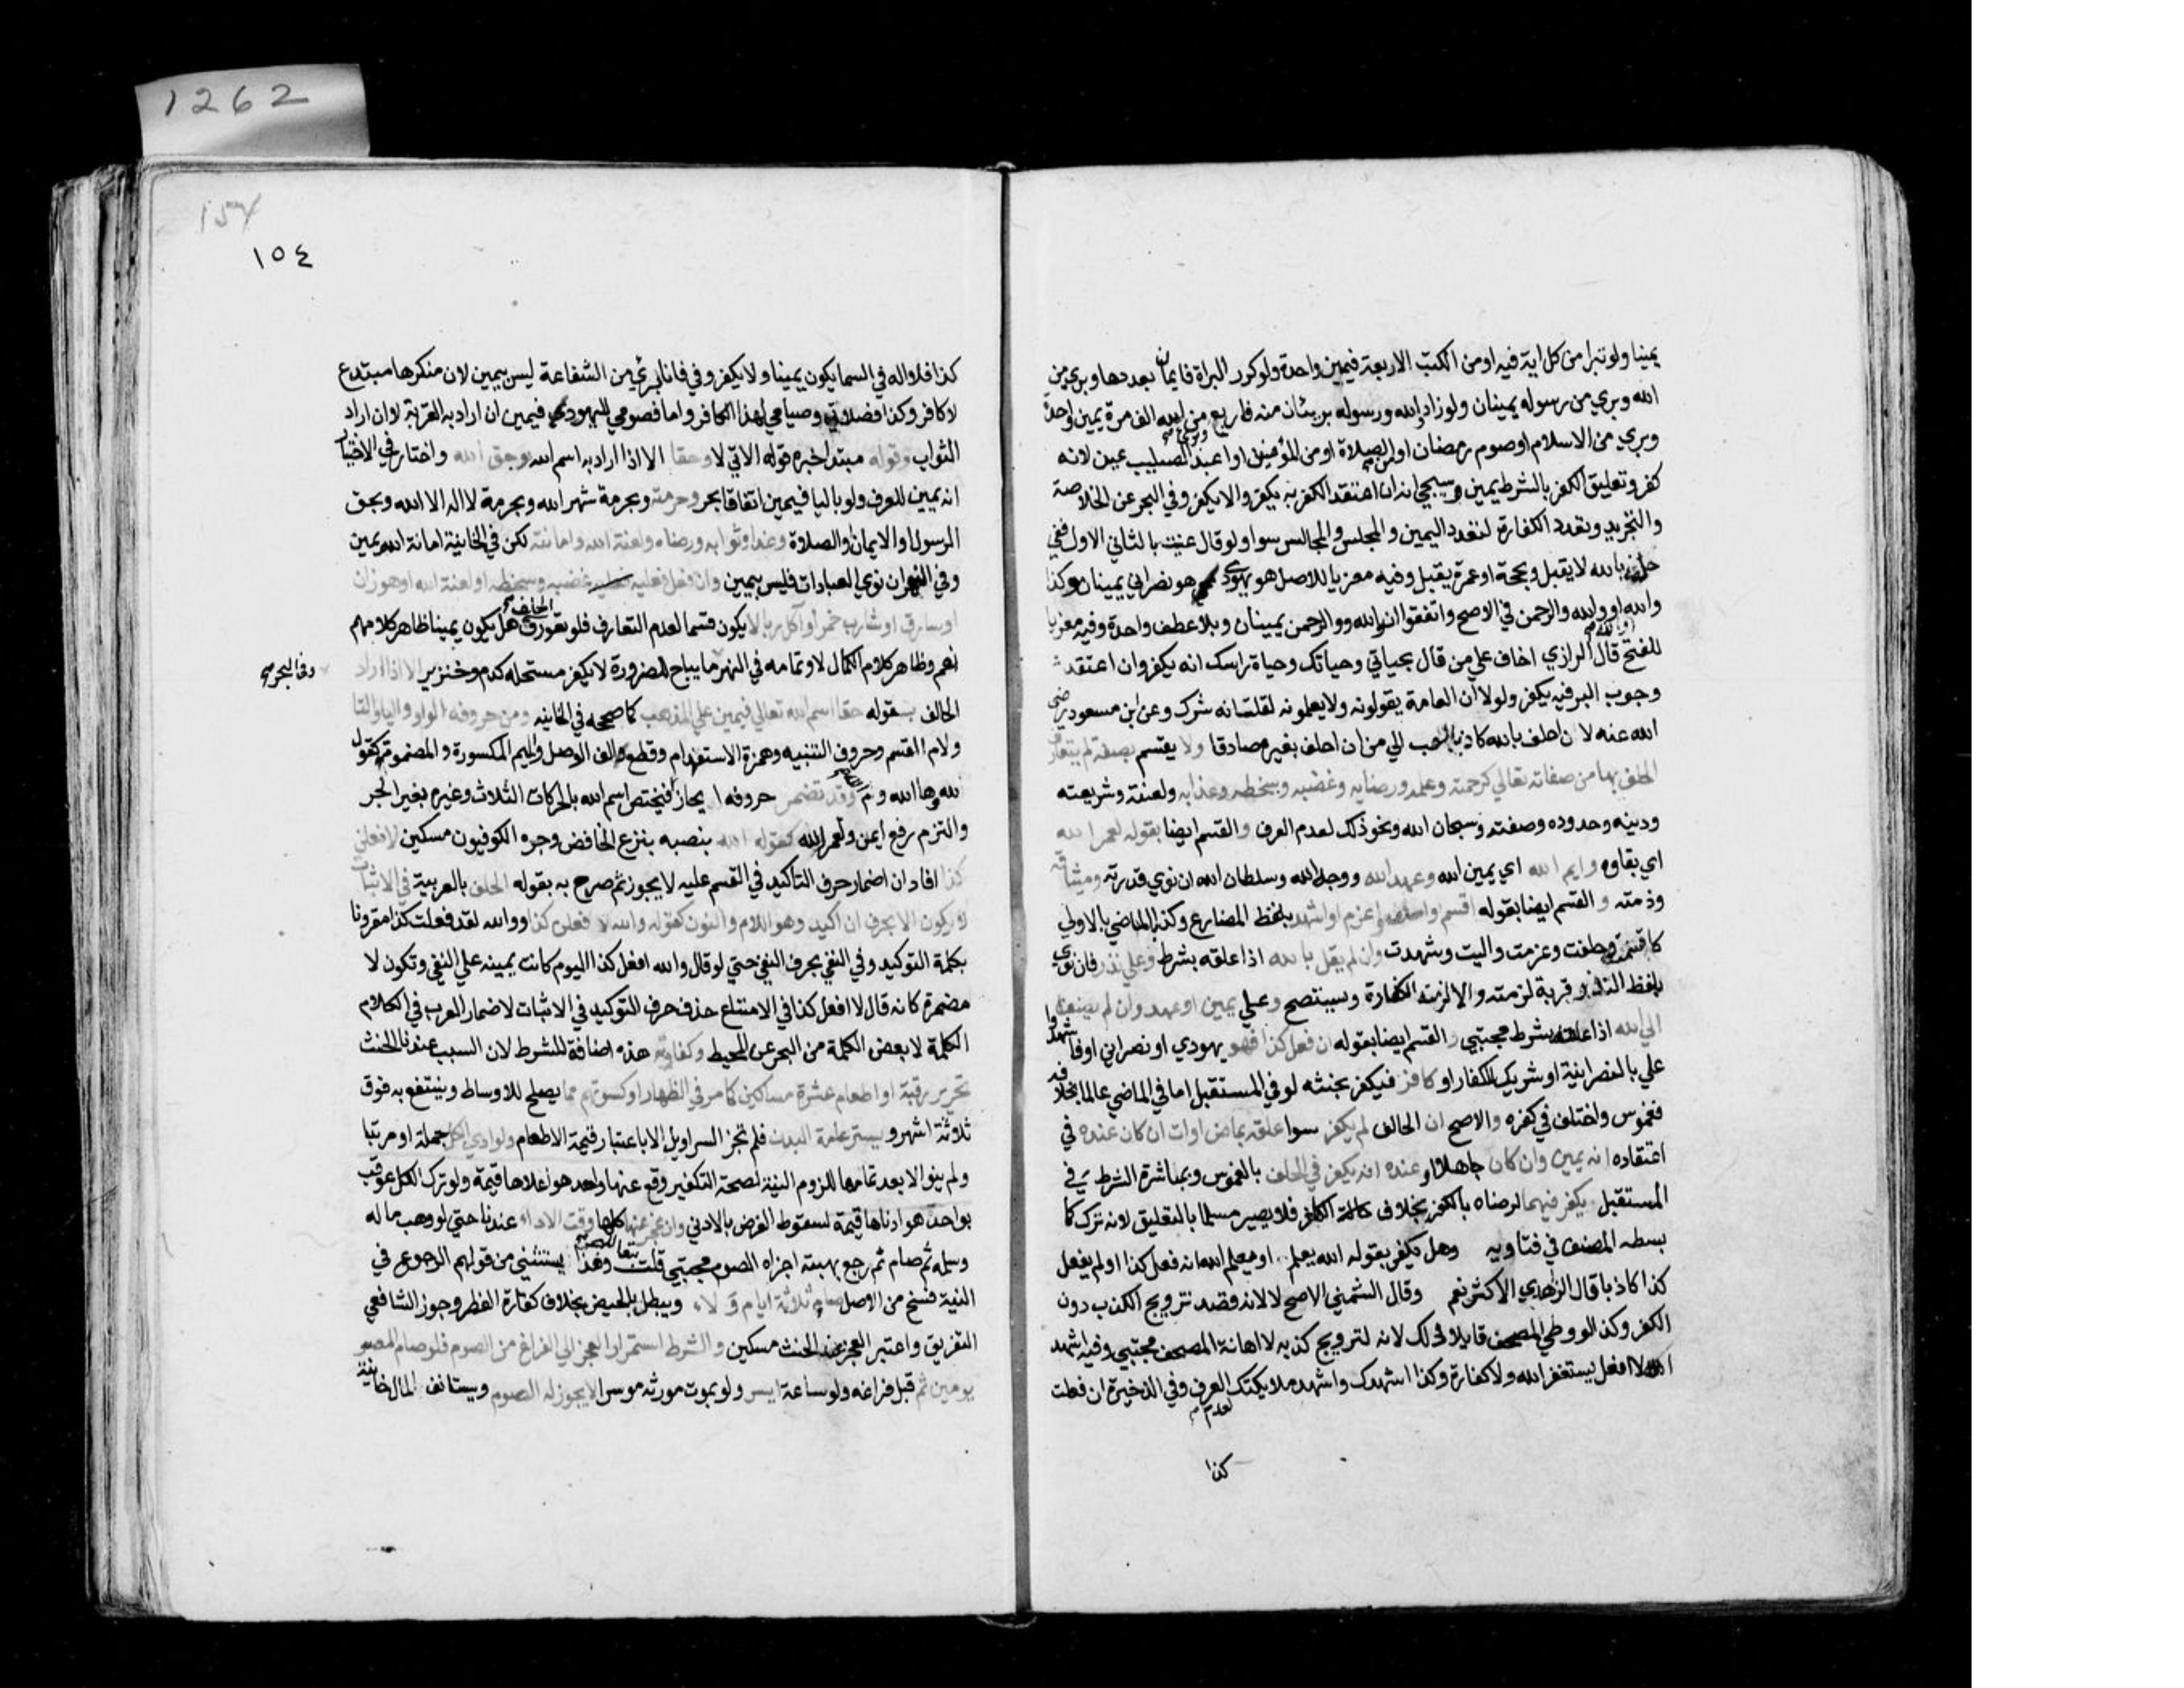 1262
يمينا ولو تبرا من كل اية فيه او من الكتب الاربعة فيمين واحدة ولو كرر البراة فايمان بعددها وبري من
الله وبري من رسوله يمينان ولو زاد والله ورسوله بريئان منه فاربع وبري من الله الف مرة يمين واحدة
وبري من الاسلام او صوم رمضان او من الصلاة او من المؤمنين او اعبد الصليب يمين لانه
كفر وتعليق الكفر بالشرط يمين وسيجي انه ان اعتقد الكفر به يكفر والا يكفر وفي البحر عن الخلاصة
والتجريد وتعدد الكفارة لتعدد اليمين والمجلس والمجالس سوا ولو قال عنيت بالثاني الاول ففي
حلفه بالله لا يقبل وبحجة او عمرة يقبل وفيه معزيا للاصل هو يهودي هو نصراني يمينان وكذا
والله او ووالله والرحمن في الاصح واتفقوا ان والله ووالرحمن يمينان وبلا عطف واحدة وفيه معزيا
للفتح قال الرازي اخاف علي من قال بحياتي وحياتك وحياة راسك انه يكفر وان اعتقد
وجوب البر فيه يكفر ولولا ان العامة يقولونه ولا يعلمونه لقلت انه شرك وعن ابن مسعود رضي
الله عنه لان احلف بالله كاذبا احب الي من ان احلف بغيره صادقا ولا يقسم بصفة لم يتعارف
الحلف بها من صفاته تعالي كرحمته وعلمه ورضايه وغضبه وسخطه وعذابه ولعنته وشريعته
ودينه وحدوده وصفته وسبحان الله ونحو ذلك لعدم العرف والقسم ايضا بقوله لعمر الله
اي بقاوه وايم الله اي يمين الله وعهد الله ووجه الله وسلطان الله ان نوي قدرته وميثاقه
وذمته والقسم ايضا بقوله اقسم واحلف واعزم او اشهد بلفظ المضارع وكذا الماضي بالاولي
كاقسمت وحلفت وعزمت واليت وشهدت وان لم يقل بالله اذا علقه بشرط وعلي نذر فان نوي
بلفظ النذر قربة لزمته والا لزمته الكفارة وسيتضح وعلي يمين او عهد وان لم يضف
الي الله اذا علقه بشرط مجتبي والقسم ايضا بقوله ان فعل كذا فهو يهودي او نصراني او فاشهدوا
علي بالنصرانية او شريك للكفار او كافر فيكفر بحنثه لو في المستقبل اما في الماضي عالما بخلافه
فغموس واختلف في كفره والاصح ان الحالف لم يكفر سوا علقه بماض او ات ان كان عنده في
اعتقاده انه يمين وان كان جاهلا او عنده انه يكفر في الحلف بالغموس وبمباشرة الشرط في
المستقبل يكفر فيهما لرضاه بالكفر بخلاف الكافر فلا يصير مسلما بالتعليق لانه ترك كما
بسطه المصنف في فتاويه وهل يكفر بقوله الله يعلم او يعلم الله انه فعل كذا او لم يفعل
كذا كاذبا قال الزاهدي الاكثر نعم وقال الشمني الاصح لا لانه قصد ترويج الكذب دون
الكفر وكذا لو وطي المصحف قايلا ذلك لانه لترويج كذبه لا اهانة المصحف مجتبي وفيه اشهد
الله لا افعل يستغفر الله ولا كفارة وكذا اشهدك واشهد ملايكتك لعدم العرف وفي الذخيرة ان فعلت
كذا
154
١٥٤
كذا فلا اله في السما يكون يمينا ولا يكفر وفي فانا بري من الشفاعة ليس بيمين لان منكرها مبتدع
لا كافر وكذا فصلاتي وصيامي لهذا الكافر واما فصومي لليهودي فيمين ان اراد به القربة لا ان اراد
الثواب وقوله مبتدا خبره قوله الاتي لا وحقا الا اذا اراد به اسم الله وحق الله واختار في الاختيار
انه يمين للعرف ولو باليا فيمين اتفاقا بحر وحرمته وبحرمة شهر الله وبحرمة لا اله الا الله وبحق
الرسول او الايمان والصلاة وعذابه وثوابه ورضاه ولعنة الله وامانته لكن في الخانية امانة الله يمين
وفي النهر ان نوي العبادات فليس بيمين وان فعله فعليه غضبه وسخطه او لعنة الله او هو زان
او سارق او شارب خمر او اكل ربا لا يكون قسما لعدم التعارف فلو تعورف الحلف هل يكون يمينا ظاهر كلامهم
نعم وظاهر كلام الكمال لا وتمامه في النهر وفي البحر ما يباح للضرورة لا يكفر مستحله كدم وخنزير الا اذا اراد
الحالف بقوله حقا اسم الله تعالي فيمين علي المذهب كما صححه في الخانيه ومن حروفه الواو واليا والتا
ولام القسم وحروف التنبيه وهمزة الاستفهام وقطع الف الوصل والميم المكسورة والمضمومة كقوله
لله وها الله وم الله وقد تضمر حروفه ايجازا فيختص اسم الله بالحركات الثلاث وغيره بغير الجر
والتزم رفع ايمن ولعمر الله كقوله الله بنصبه بنزع الخافض وجره الكوفيون مسكين لافعلن
كذا افاد ان اضمار حرف التاكيد في المقسم عليه لا يجوز ثم صرح به بقوله الحلف بالعربية في الاثبات
لا يكون الا بحرف التاكيد وهو اللام والنون كقوله والله لافعلن كذا ووالله لقد فعلت كذا مقرونا
بكلمة التوكيد وفي النفي بحرف النفي حتي لو قال والله افعل كذا اليوم كانت يمينه علي النفي وتكون لا
مضمرة كانه قال لا افعل كذا في الامتناع حذف حرف التوكيد في الاثبات لاضمار العرب في الكلام
الكلمة لا بعض الكلمة من البحر عن المحيط وكفارته هذه اضافة للشرط لان السبب عندنا الحنث
تحرير رقبة او اطعام عشرة مساكين كما مر في الظهار او كسوتهم مما يصلح للاوساط وينتفع به فوق
ثلاثة اشهر ويستر عامة البدن فلم تجز السراويل الا باعتبار قيمة الاطعام ولو ادي الكل جملة او مرتبا
ولم ينو الا بعد تمامها للزوم النية لصحة التكفير وقع عنها واحد هو اعلاها قيمة ولو ترك الكل عوقب
بواحد هو ادناها قيمة لسقوط الفرض بالادني وان عجز عنها كلها وقت الاداء عندنا حتي لو وهب ماله
وسلمه ثم صام ثم رجع بهبته اجزاه الصوم مجتبي قلت وهذا يستثني من قولهم الرجوع في
النية فسخ من الاصل صام ثلاثة ايام ولاء ويبطل بالحيض بخلاف كفارة الفطر وجوز الشافعي
التفريق واعتبر العجز عند الحنث مسكين والشرط استمرار العجز الي الفراغ من الصوم فلو صام المعسر
يومين ثم قبل فراغه ولو ساعة ايسر ولو بموت مورثه موسرا لا يجوز له الصوم ويستانف بالمال خانية